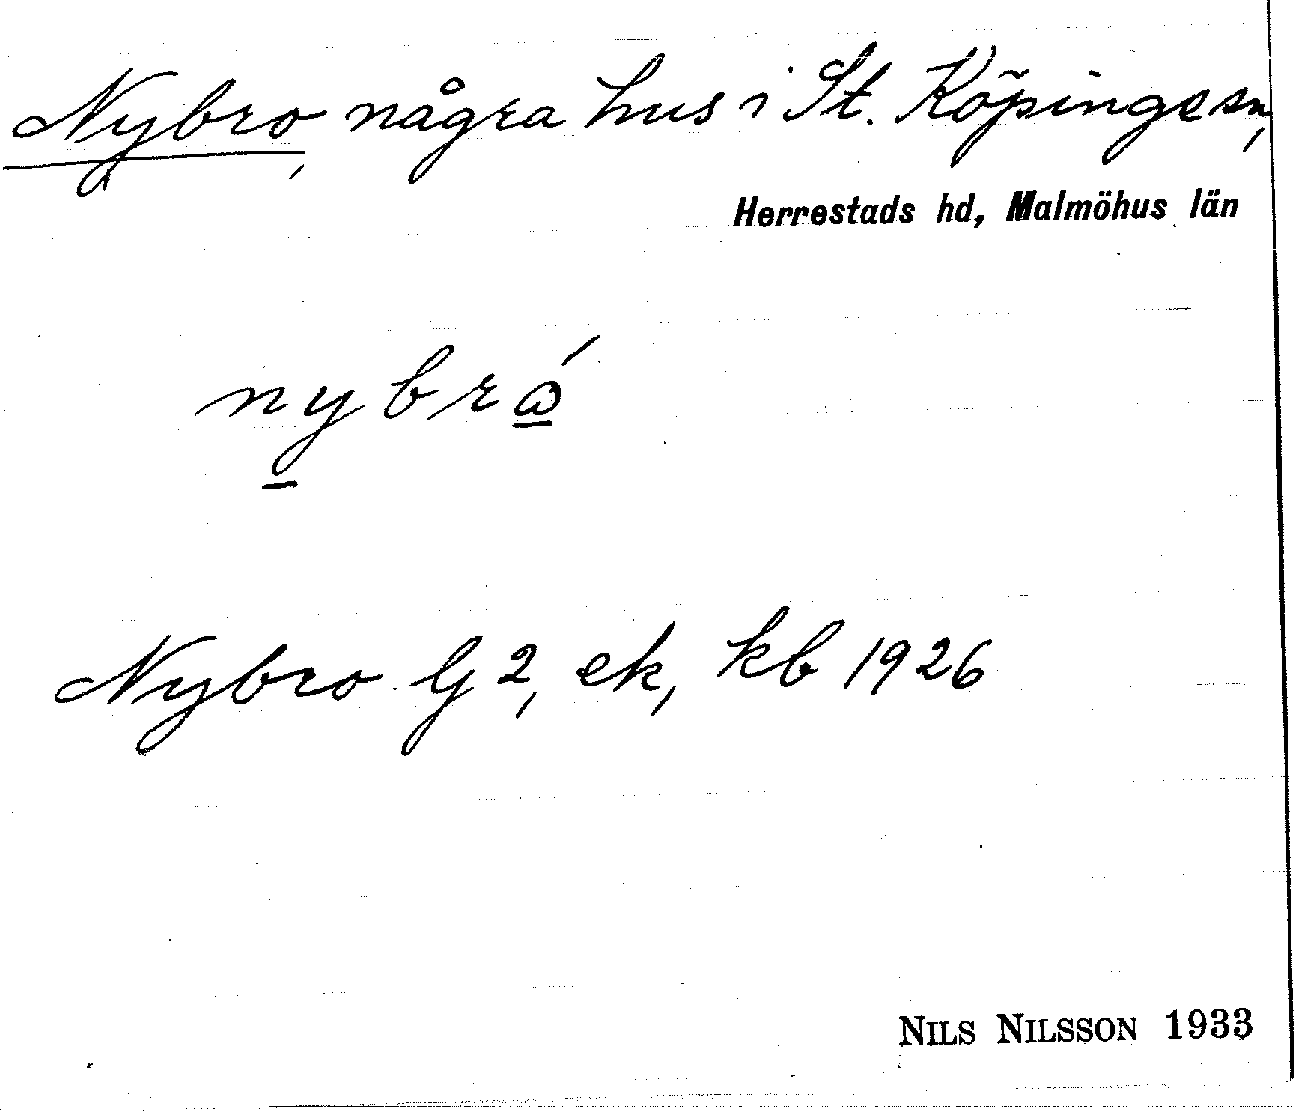 Nybro, några hus i St. Köpinge sn,
Herrestads hd, Malmöhus län
nybró
Nybro G 2, ek, kb 1926
NILS NILSSON 1933